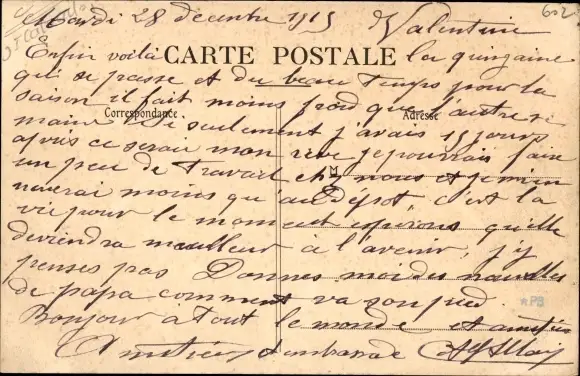 Mardi 28 decembre 1915 Valentine
602
Enfin voilà CARTE POSTALE la quinzaine
qui se passe et du beau Temps pour la
saison il fait moins froid que l'autre se
Correspondance Adresse
maine Si seulement j'avais 15 jours
apres ce serait mon reve je pourrais faire
un peu de Travail chez nous et je m'en
nuierai moins qu'au dépot, c'est la
vie pour le moment espérons qu'elle
deviendra meilleur à l'avenir, j'y
penses pas Donnes moi des nouvelles
de papa comment va son pied
*PB
Bonjour a Tout le monde et amitiés
Amitiés